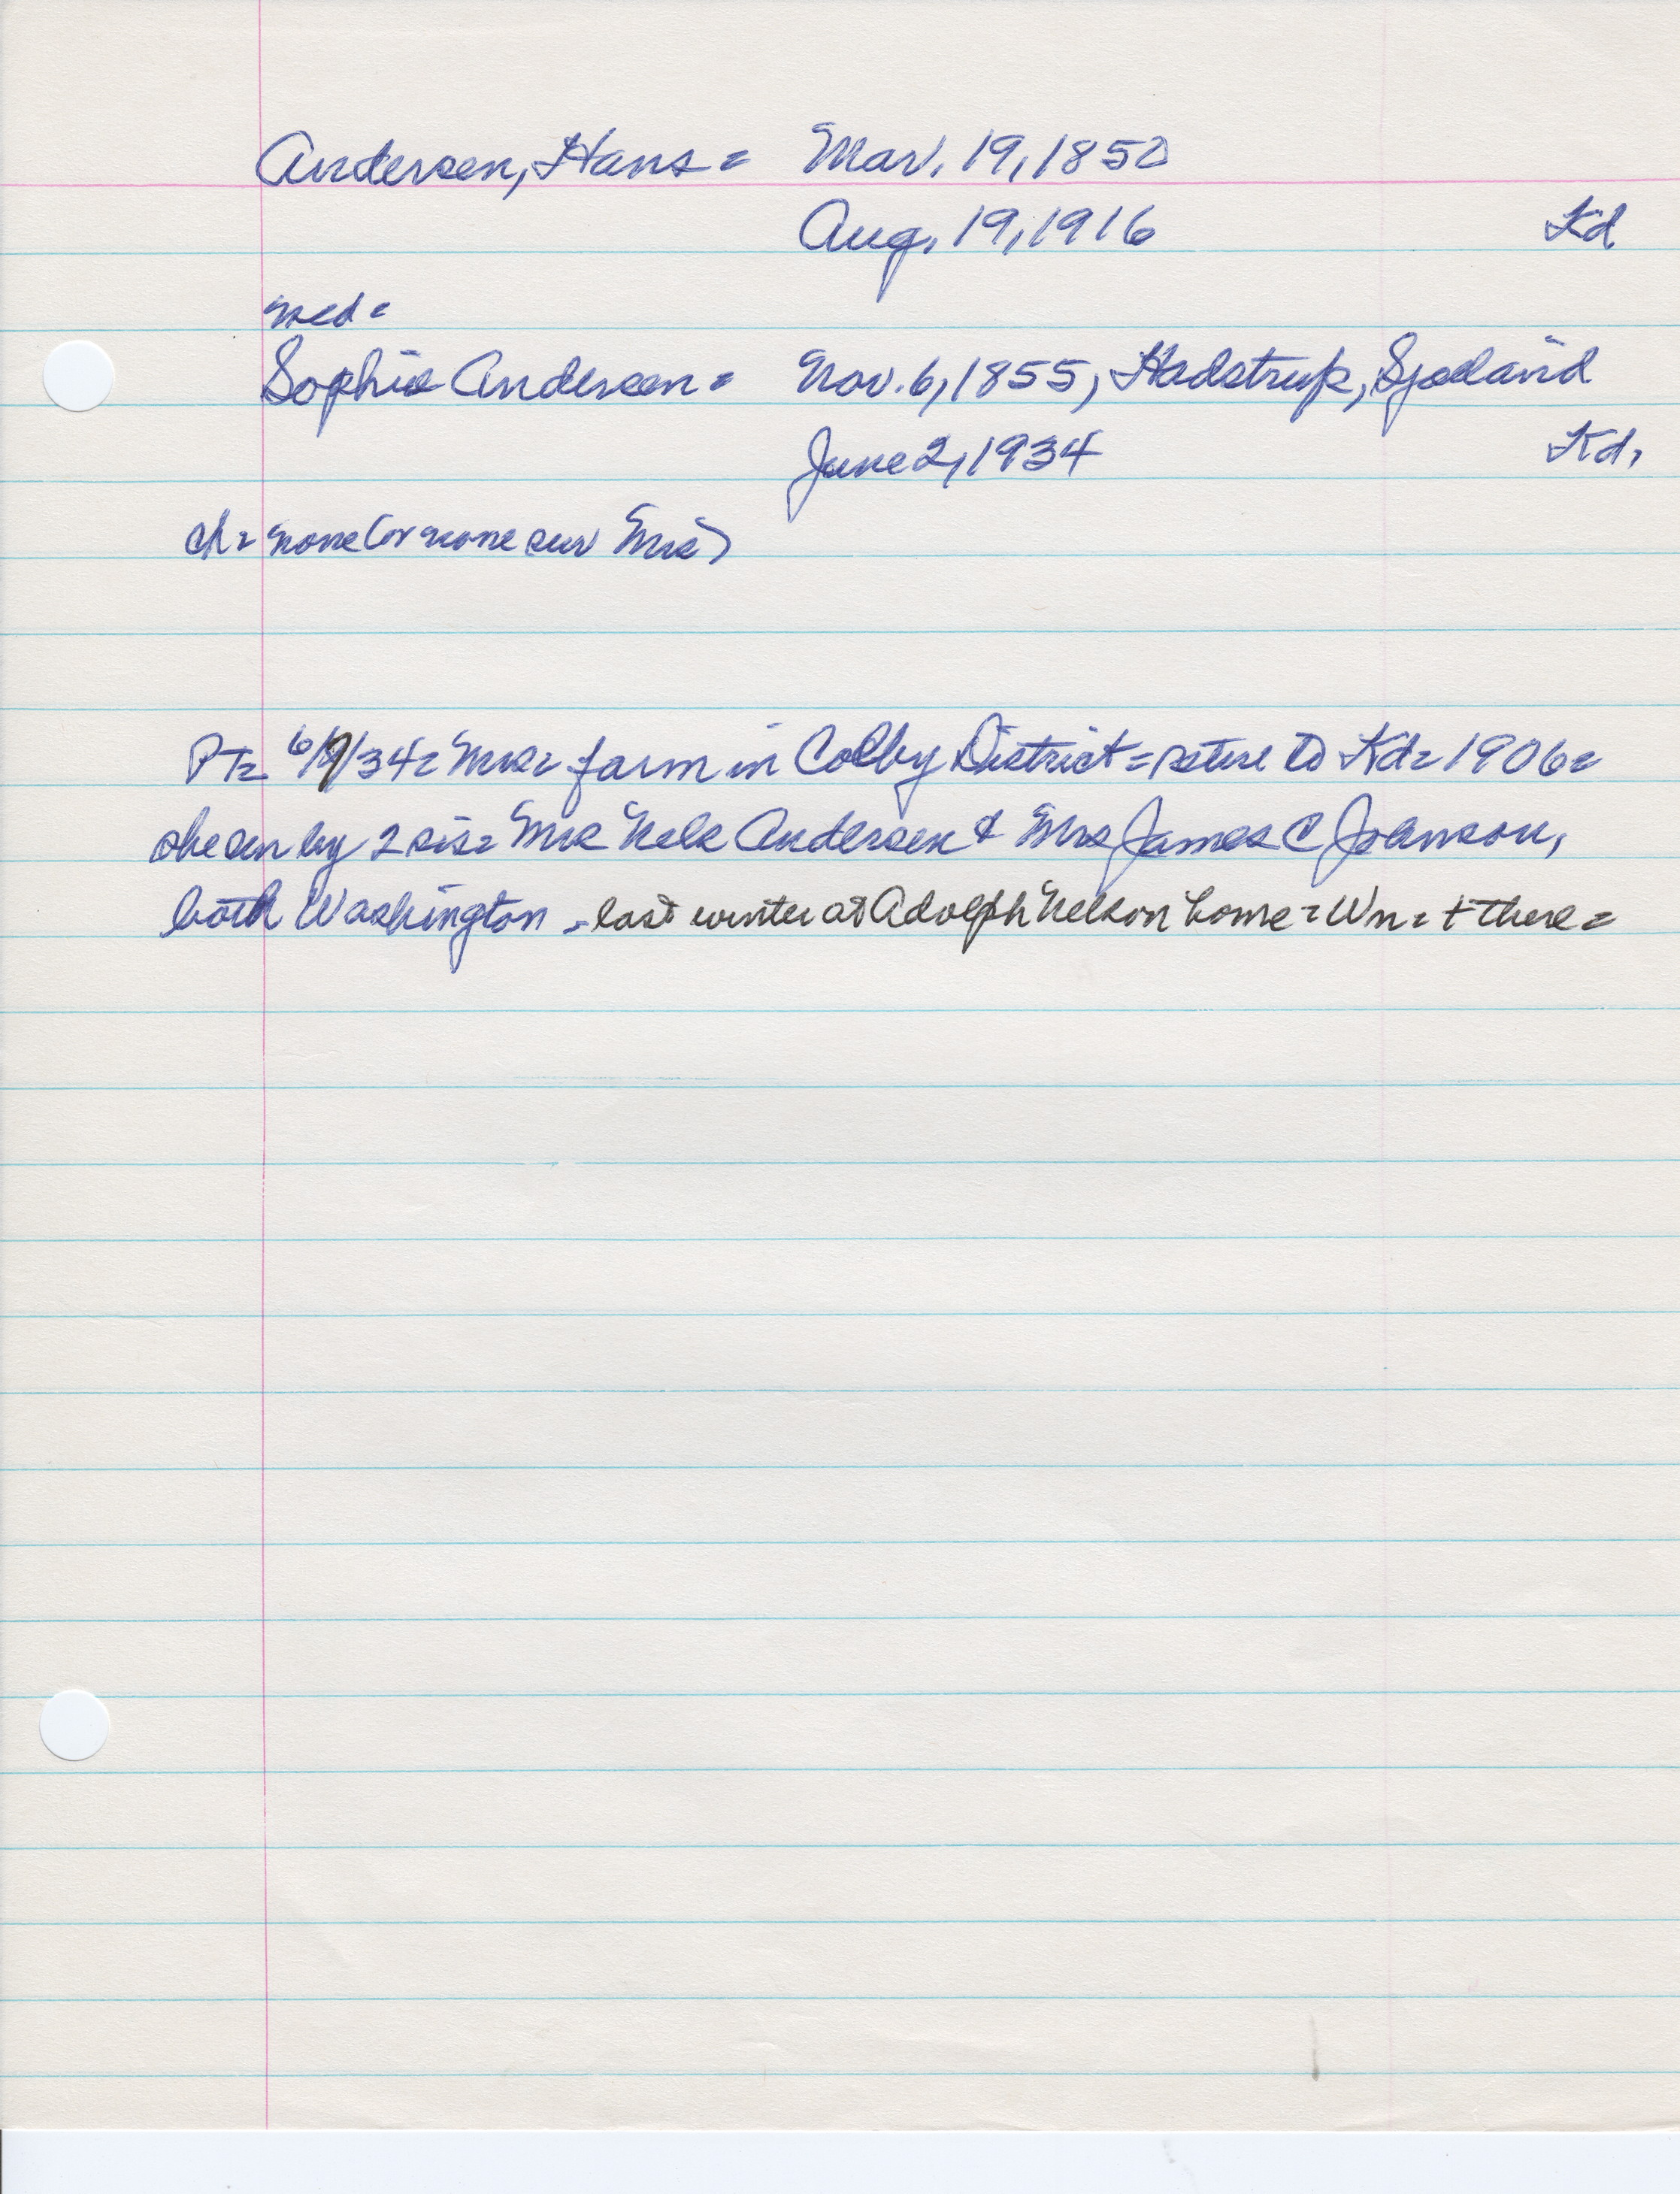 Andersen, Hans = Mar. 19, 1850
Aug. 19, 1916 Kd
med =
Sophie Andersen = Nov. 6, 1855, Hadstrup, Sjaeland
June 2, 1934 Kd.
ch = none (or none sur Mrs)
PT = 6/7/34 = Mrs = farm in Colby District = retire to Kd = 1906 =
she sur by 2 sis = Mrs Nels Andersen & Mrs James C Johnson,
both Washington = last winter at Adolph Nelson home = Wn = + there =